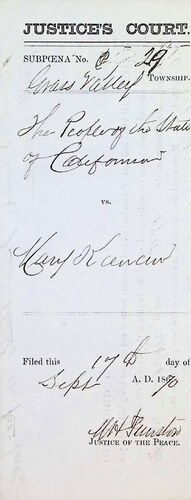 JUSTICE'S COURT.
SUBPŒNA No. 29
Grass Valley TOWNSHIP.
The People of the State
of California
vs.
Mary
Filed this 17th day of
Sept A. D. 1890
JUSTICE OF THE PEACE.